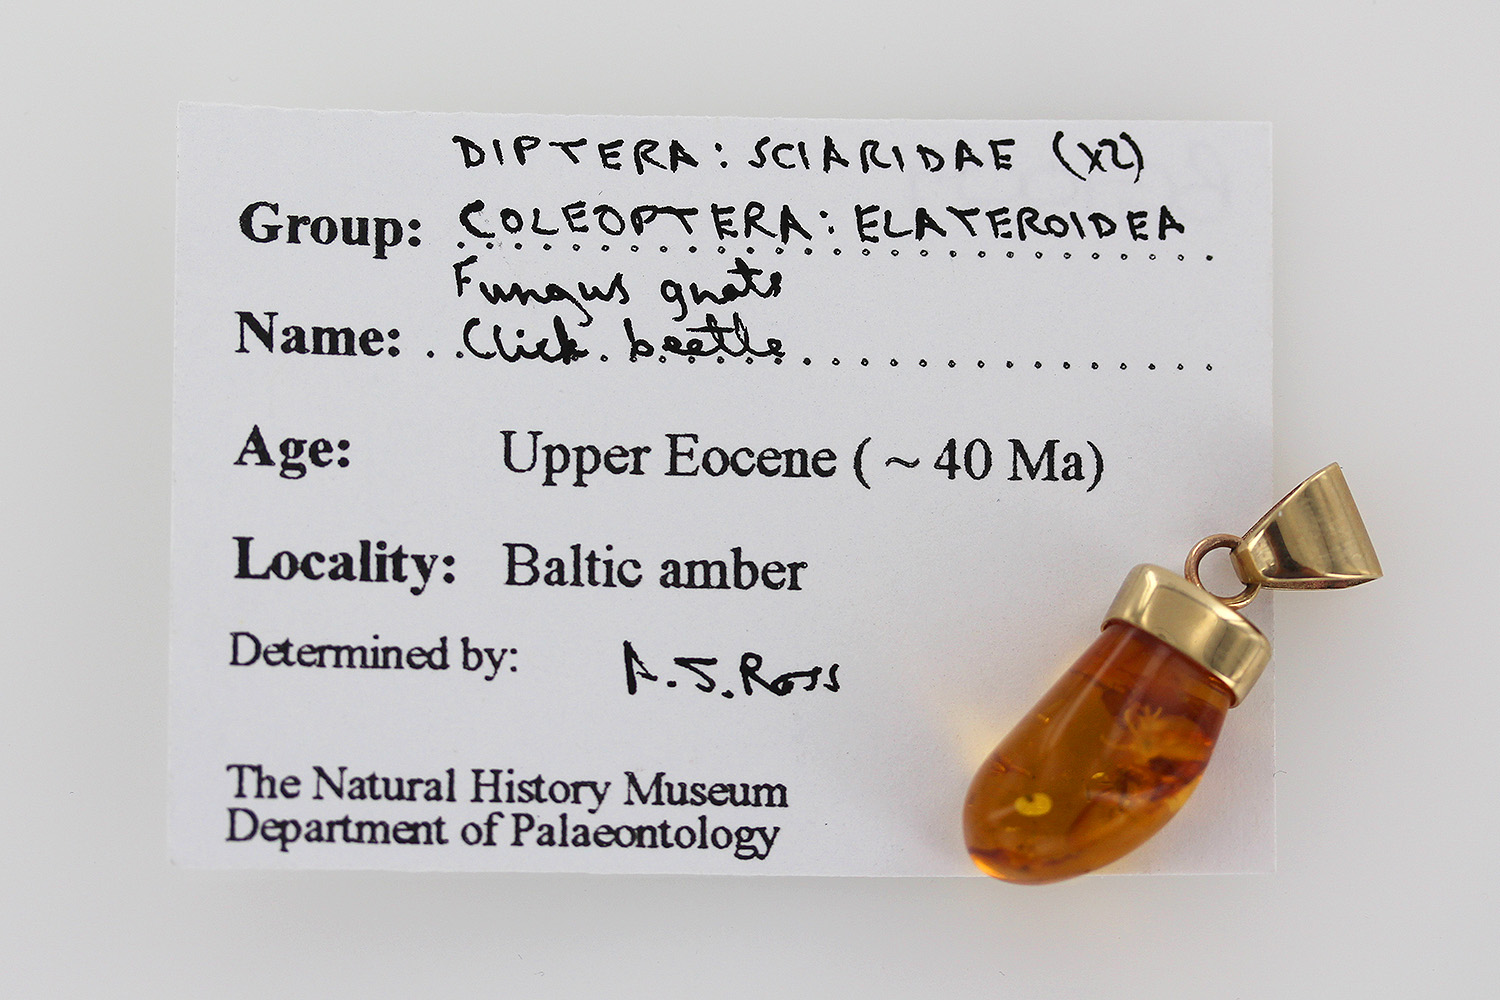 DIPTERA: SCIARIDAE (x2)
Group: COLEOPTERA: ELATEROIDEA
Fungus gnats
Name: Click beetle
Age: Upper Eocene ( ~ 40 Ma)
Locality: Baltic amber
Determined by: A.J. Ross
The Natural History Museum
Department of Palaeontology